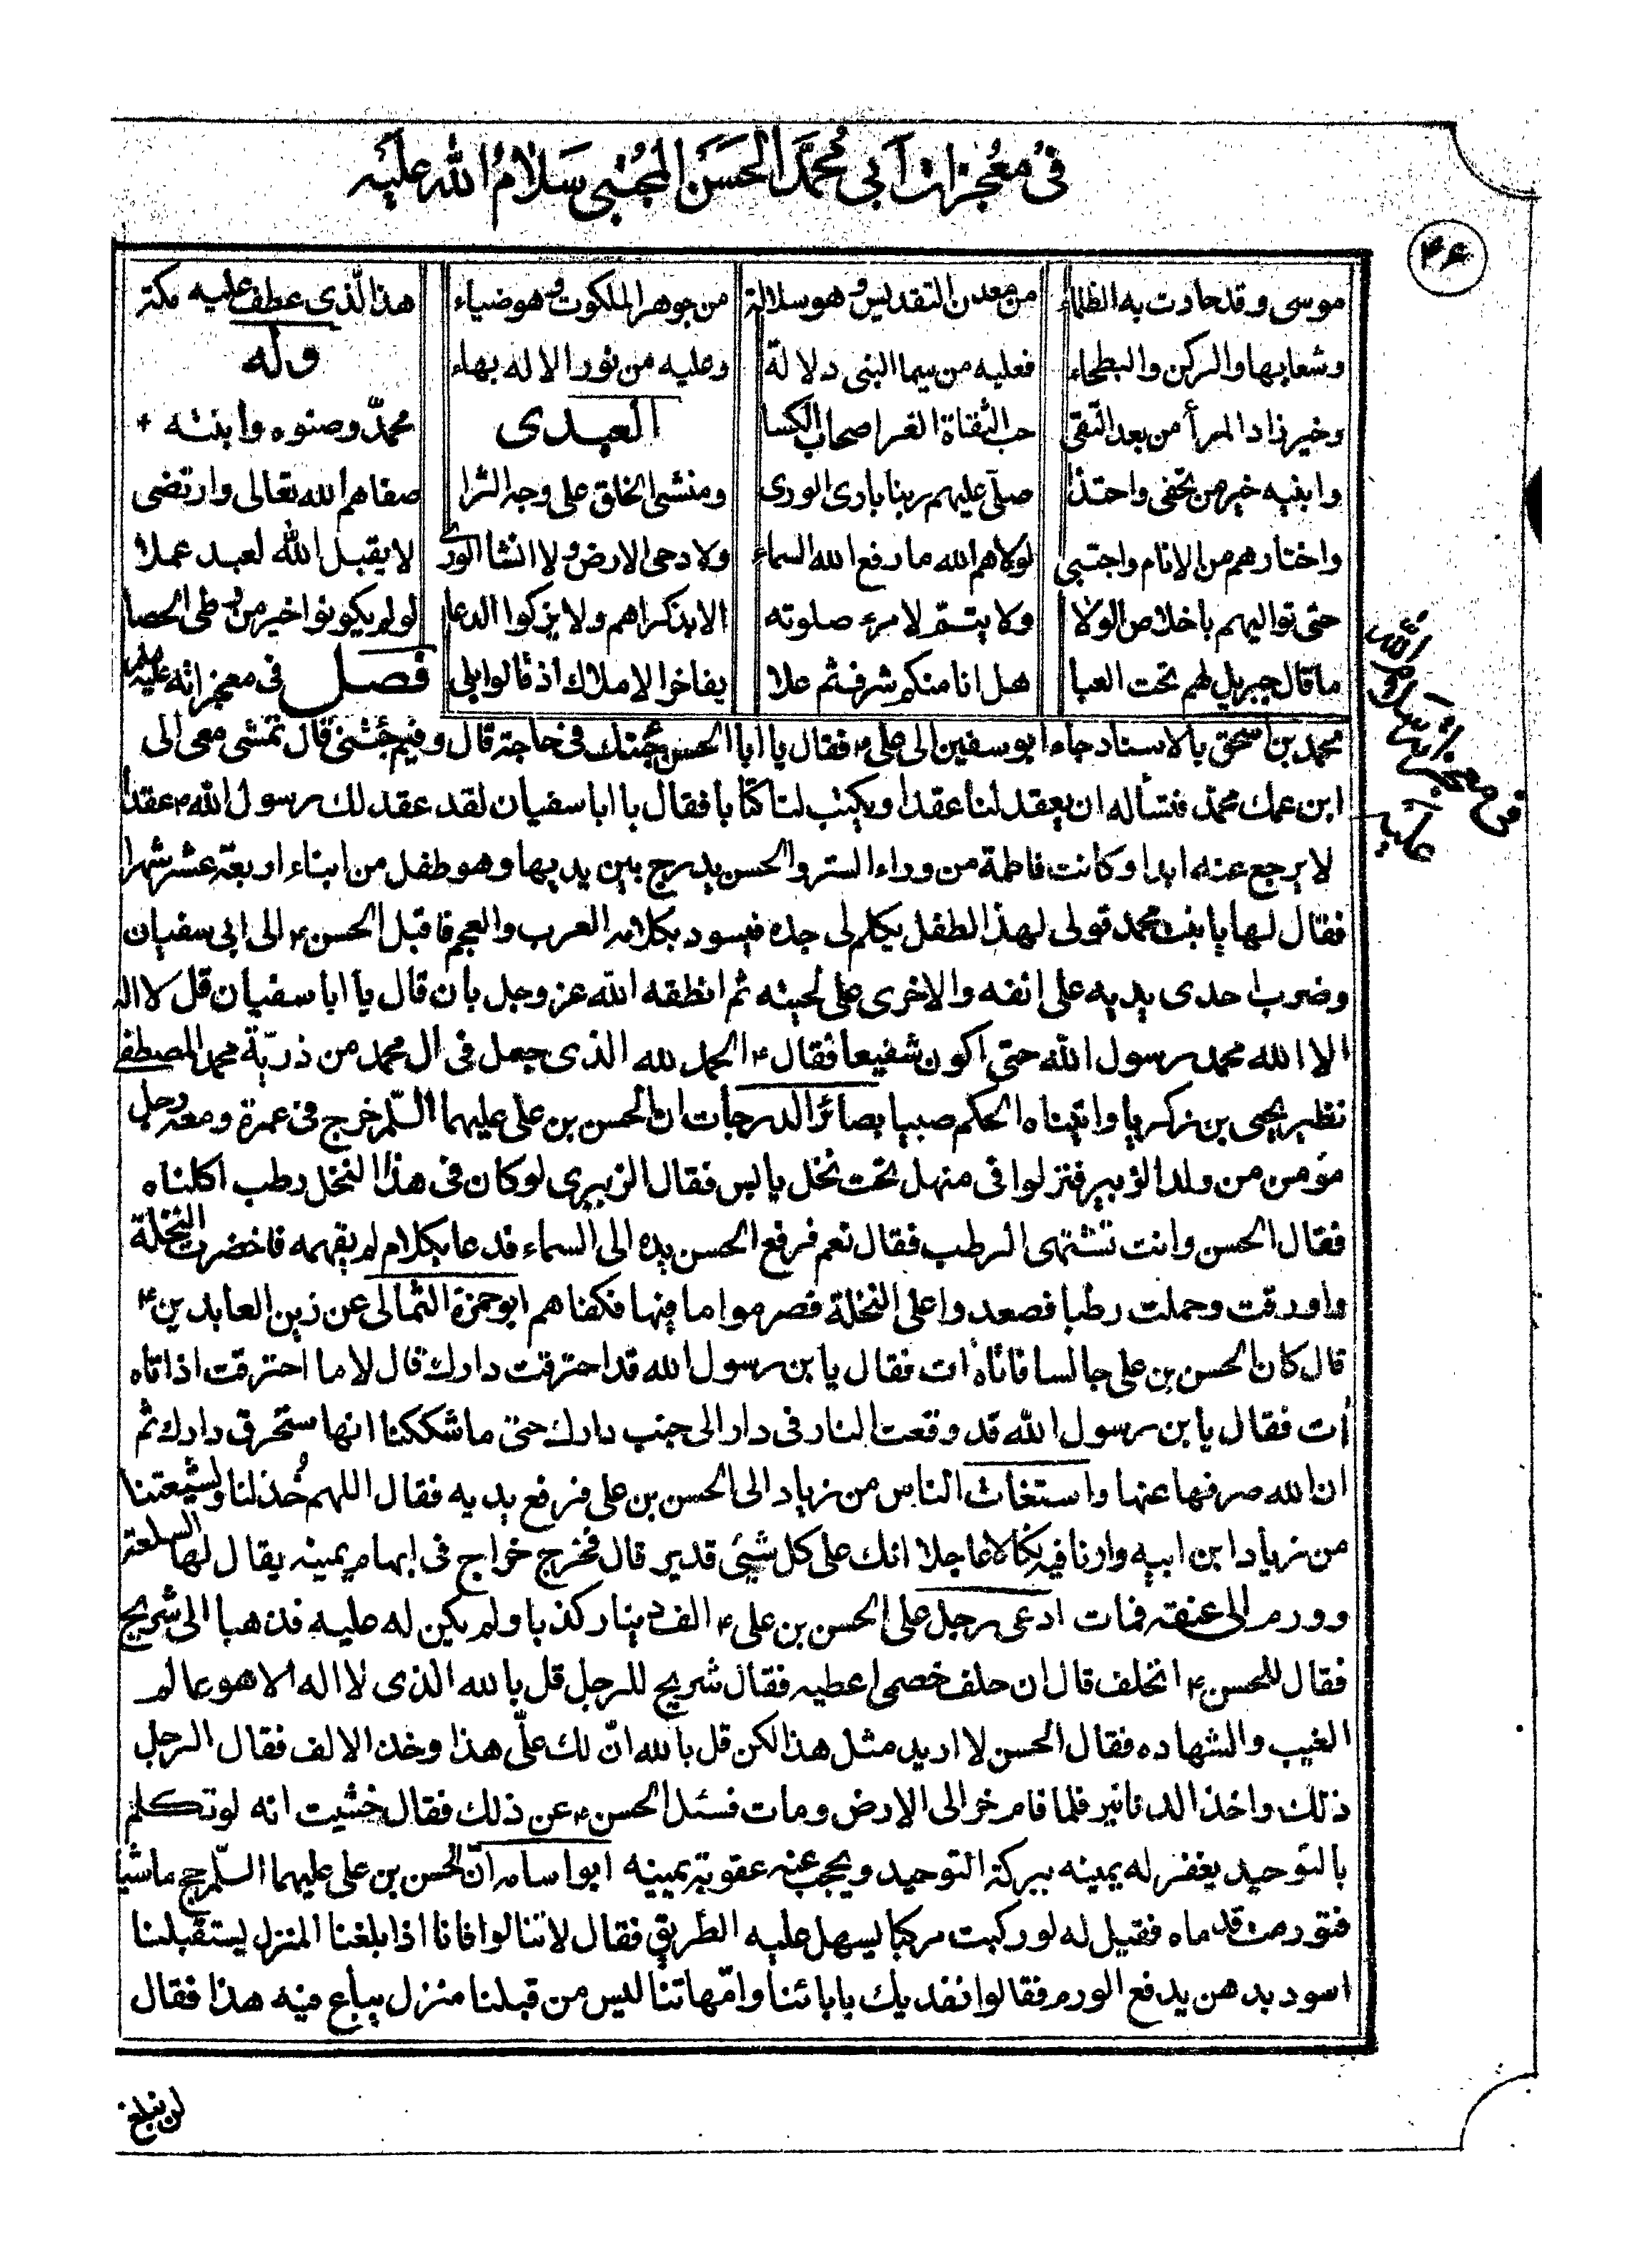 في معجزات أبي محمد الحسن المجتبى سلام الله عليه
۴۶
موسى وقد حارت به الظلماء من معدن التقديس وهو سلالة من جوهر الملكوت وهو ضياء هذا الذي عطف عليه مكة
وشعابها والركن والبطحاء فعليه من سيما النبي دلالة وعليه من نور الاله بهاء وله
وخير زاد المرأ من بعد التقى حب الثقاة الغر اصحاب الكسا العبدى محمد وصنوه وابنته +
وابنيه خير من تحفى واحتذا صلى عليهم ربنا بارى الورى ومنشئ الخلق على وجه الثرا صفاهم الله تعالى وارتضى
واختارهم من الانام واجتبى لولاهم الله ما رفع الله السماء ولا دحى الارض ولا انشا الورى لا يقبل الله لعبد عملا
حتى تواليهم باخلاص الولا ولا يتم لامرء صلوته الا بذكراهم ولا يزكوا الدعا لو لم يكونوا خير من وطى الحصا
ما قال جبريل لهم تحت العبا هل انا منكم شرف ثم علا يفاخر الاملاك اذ قالوا بلى فصل في معجزاته عليه
محمد بن اسحق بالاسناد جاء ابو سفين الى علي ۴ فقال يا ابا الحسن جئتك فى حاجة قال وفيم جئتنى قال تمشى معى الى
ابن عمك محمد فنسأله ان يعقد لنا عقدا ويكتب لنا كتابا فقال يا ابا سفيان لقد عقد لك رسول الله ۴ عقدا
لا يرجع عنه ابدا وكانت فاطمة من وراء الستر والحسن يدرج بين يديها وهو طفل من ابناء اربعة عشر شهرا
فقال لها يا بنت محمد قولى لهذا الطفل يكلم لى جده فيسود بكلامه العرب والعجم فاقبل الحسن ۴ الى ابى سفيان
وضرب احدى يديه على انفه والاخرى على لحيته ثم انطقه الله عز وجل بان قال يا ابا سفيان قل لا اله
الا الله محمد رسول الله حتى اكون شفيعا فقال ۴ الحمد لله الذى جعل فى ال محمد من ذرية محمد المصطفى
نظير يحيى بن زكريا واتيناه الحكم صبيا بصائر الدرجات ان الحسن بن على عليهما السلم خرج فى عمرة ومعه رجل
مؤمن من ولد الزبير فنزلوا فى منهل تحت نخل يابس فقال الزبيرى لو كان فى هذا النخل رطب اكلناه
فقال الحسن وانت تشتهى الرطب فقال نعم فرفع الحسن يده الى السماء فدعا بكلام لم يفهمه فاخضرت النخلة
واورقت وحملت رطبا فصعدوا على النخلة فصرموا ما فيها فكفاهم ابو حمزة الثمالى عن زين العابدين ۴
قال كان الحسن بن على جالسا فاتاه ات فقال يا بن رسول الله قد احترقت دارك قال لا ما احترقت اذ اتاه
أت فقال يا بن رسول الله قد وقعت النار فى دار الى جنب دارك حتى ما شككنا انها ستحرق دارك ثم
ان الله صرفها عنها واستغاث الناس من زياد الى الحسن بن على فرفع يديه فقال اللهم خذ لنا ولشيعتنا
من زياد ابن ابيه وارنا فيه نكالا عاجلا انك على كل شيئ قدير قال فخرج خراج فى ابهام يمينه يقال لها السلعة
وورم الى عنقه فمات ادعى رجل على الحسن بن على ۴ الف دينار كذبا ولم يكن له عليه فذهبا الى شريح
فقال للحسن ۴ اتحلف قال ان حلف خصمى اعطيه فقال شريح للرجل قل بالله الذى لا اله الا هو عالم
الغيب والشهاده فقال الحسن لا اريد مثل هذا لكن قل بالله ان لك على هذا وخذ الالف فقال الرجل
ذلك واخذ الدنانير فلما قام خر الى الارض ومات فسئل الحسن ۴ عن ذلك فقال خشيت انه لو تكلم
بالتوحيد يغفر له يمينه ببركة التوحيد ويحجب عنه عقوبة يمينه ابو اسامه ان الحسن بن على عليهما السلم حج ماشيا
فتورمت قدماه فقيل له لو ركبت مركبا ليسهل عليه الطريق فقال لا تنالوا فانا اذا بلغنا المنزل يستقبلنا
اسود بدهن يدفع الورم فقالوا نفديك بابائنا وامهاتنا ليس من قبلنا منزل يباع فيه هذا فقال
لن نبلغ